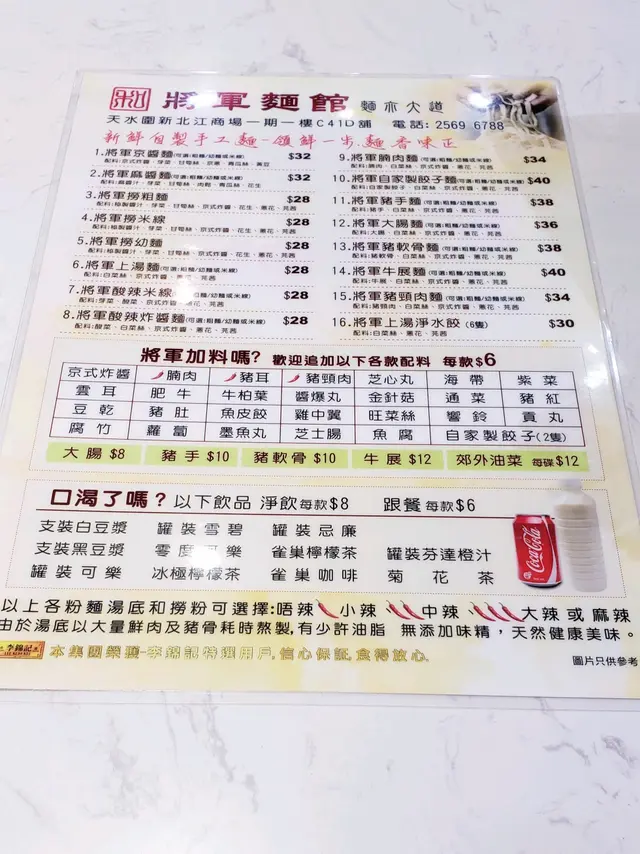 將軍麵館 麵亦大道
天水圍新北江商場一期一樓C41D舖 電話: 2569 6788
新鮮自製手工麵-領鮮一步.麵香味正
1.將軍京醬麵(可選:粗麵/幼麵或米線) $32
2.將軍麻醬麵(可選:粗麵/幼麵或米線) $32
3.將軍撈粗麵 $28
4.將軍撈米線 $28
5.將軍撈幼麵 $28
6.將軍上湯麵(可選:粗麵/幼麵或米線) $28
7.將軍酸辣米線(可選:粗麵/幼麵或米線) $28
8.將軍酸辣炸醬麵(可選:粗麵/幼麵或米線) $28
9.將軍腩肉麵(可選:粗麵/幼麵或米線) $34
10.將軍自家製餃子麵 $40
11.將軍豬手麵(可選:粗麵/幼麵或米線) $38
12.將軍大腸麵(可選:粗麵/幼麵或米線) $36
13.將軍豬軟骨麵(可選:粗麵/幼麵或米線) $38
14.將軍牛展麵(可選:粗麵/幼麵或米線) $40
15.將軍豬頸肉麵(可選:粗麵/幼麵或米線) $34
16.將軍上湯淨水餃(6隻) $30
將軍加料嗎? 歡迎追加以下各款配料 每款$6
京式炸醬 腩肉 豬耳 豬頸肉 芝心丸 海帶 紫菜
雲耳 肥牛 牛柏葉 醬爆丸 金針菇 通菜 豬紅
豆乾 豬肚 魚皮餃 雞中翼 旺菜絲 響鈴 貢丸
腐竹 蘿蔔 墨魚丸 芝士腸 魚腐 自家製餃子(2隻)
大腸$8 豬手$10 豬軟骨$10 牛展$12 郊外油菜 每碟$12
口渴了嗎? 以下飲品 淨飲每款$8 跟餐每款$6
支裝白豆漿 罐裝雪碧 罐裝忌廉
支裝黑豆漿 零度可樂 雀巢檸檬茶 罐裝芬達橙汁
罐裝可樂 冰極檸檬茶 雀巢咖啡 菊花茶
Coca-Cola
以上各粉麵湯底和撈粉可選擇:唔辣 小辣 中辣 大辣或麻辣
由於湯底以大量鮮肉及豬骨耗時熬製,有少許油脂 無添加味精,天然健康美味。
李錦記 本集團榮獲-李錦記特選用戶,信心保証,食得放心.
圖片只供參考